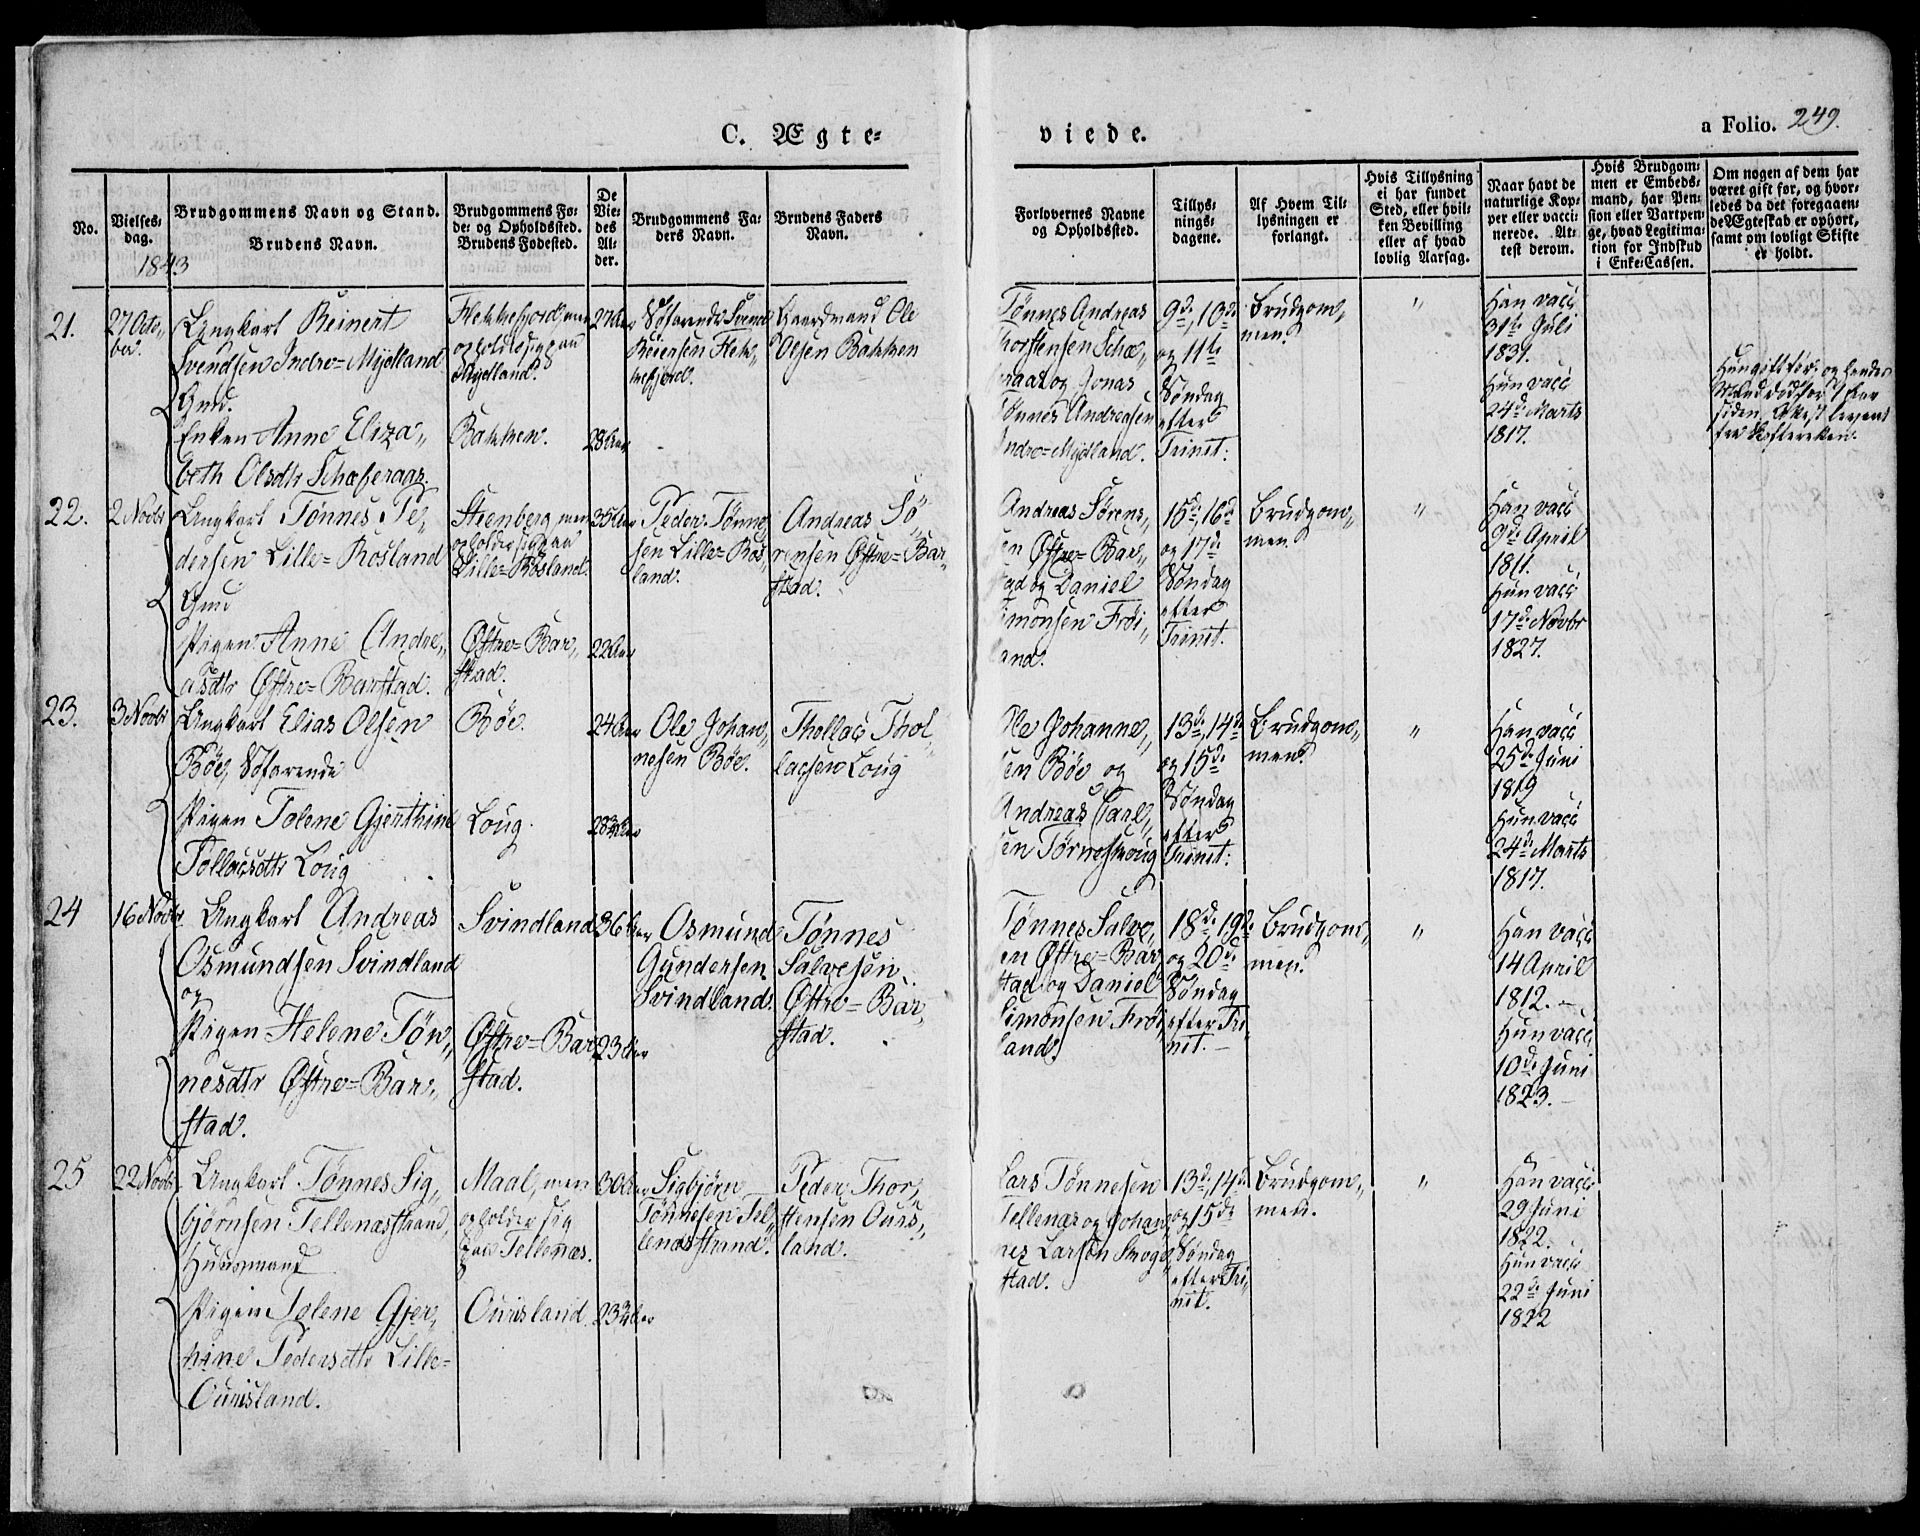 C. Ægte-
viede.
a Folio. 249.
No.
Vielses-
dag.
1843
Brudgommens Navn og Stand.
Brudens Navn.
Brudgommens Fø-
de- og Opholdssted.
Brudens Fødested.
De
Vie-
des
Al-
der.
Brudgommens Fa-
ders Navn.
Brudens Faders
Navn.
Forlovernes Navne
og Opholdssted.
Tillys-
nings-
dagene.
Af Hvem Til-
lysningen er
forlangt.
Hvis Tillysning
ei har fundet
Sted, eller hvil-
ken Bevilling
eller af hvad
lovlig Aarsag.
Naar havt de
naturlige Kop-
per eller vacci-
nerede. At-
test derom.
Hvis Brudgom-
men er Embeds-
mand, har Pen-
sion eller Vartpen-
ge, hvad Legitima-
tion for Indskud
i Enke-Cassen.
Om nogen af dem har
været gift før, og hvor-
ledes da det foregaaen-
de Ægteskab er ophørt,
samt om lovligt Skifte
er holdt.
21.
27 Octo-
ber.
Ungkarl Reinert
Svendsen Indre=Mydland
Gmd.
Enken Anne Eliza„
beth Olsdtr Schæferaas.
Flekkefjord, men
opholder sig paa
Mydland.
Bakken.
27 Aar
28 Aar
Søfarende Svend
Reiersen Flek„
kefjord.
Gaardmand Ole
Olsen Bakken
Tønnes Andreas
Thorstensen Schæ„
feraas og Jonas
Tønnes Andreasen
Indre=Mydland.
9de, 10de
og 11te
Søndag
efter
Trinit:
Brudgom„
men.
„
Han vacc
31te Juli
1831.
Hun vacc
24de Marts
1817.
Hun gift før, og hendes
Mand død for 1 Aar
siden. Attest leveret
fra Skifteretten.
22.
2 Novbr
Ungkarl Tønnes Pe„
dersen Lille=Rosland
Gmd
Pigen Anne Andre„
asdtr Østre=Barstad.
Steenberg, men
opholder sig paa
Lille=Rosland.
Østre=Bar„
stad.
35 Aar
22 Aar
Peder Tønne„
sen Lille=Ros„
land.
Andreas Sø„
rensen Østre=Bar„
stad.
Andreas Sørens„
en Østre=Bar„
stad og Daniel
Simonsen Frøi„
land.
15de, 16de
og 17de
Søndag
efter
Trinit.
Brudgom„
men.
„
Han vacc
9de April
1811.
Hun vacc
17de Novbr
1827.
23.
3 Novbr
Ungkarl Elias Olsen
Bøe, Søfarende
Pigen Tolene Gjerthine
Tollacsdtr Loug
Bøe.
Loug.
24 Aar
28¾ Aar
Ole Johan„
nesen Bøe.
Thollac Thol„
lacsen Loug
Ole Johanne„
sen Bøe og
Andreas Carl„
sen Tørneskoug
13de, 14de
og 15de
Søndag
efter
Trinit:
Brudgom„
men.
„
Han vacc
25de Juni
1819
Hun vacc
24de Marts
1817.
24
16 Novbr
Ungkarl Andreas
Osmundsen Svindland
og
Pigen Helene Tøn„
nesdtr Østre=Bar„
stad.
Svindland
Østre=Bar„
stad.
36 Aar
23 Aar
Osmund
Gundersen
Svindland.
Tønnes
Salvesen
Østre=Bar„
stad.
Tønnes Salve„
en Østre=Bar„
stad og Daniel
Simonsen Frøi„
land.
18de, 19de
og 20de
Søndag
efter Tri„
nit.
Brudgom„
men.
„
Han vacc
14 April
1812.
Hun vacc
10de Juni
1823.
25
22 Novbr
Ungkarl Tønnes Sig„
bjørnsen Tellenæsstrand,
Huusmand
Pigen Tolene Gjer„
thine Pedersdtr Lille=
Ourisland.
Maal, men
opholder sig
paa Tellenæs.
Ourisland.
30 Aar
23¾ Aar
Sigbjørn
Tønnesen Tel„
lenæsstrand.
Peder Thor„
stensen Ouris„
land.
Lars Tønnesen
Tellenæs og Johan„
nes Larsen Skoge„
stad.
13de, 14de
og 15de
Søndag
efter Tri„
nit.
Brudgom„
men.
„
Han vacc
29 Juni
1822.
Hun vacc
22de Juni
1822